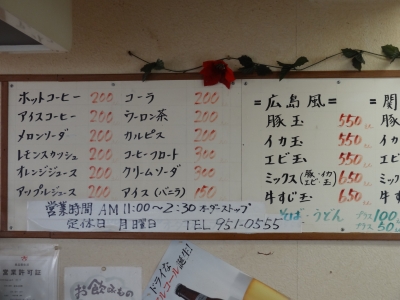 ホットコーヒー 200
アイスコーヒー 200
メロンソーダ 200
レモンスカッシュ 200
オレンジジュース 200
アップルジュース 200
コーラ 200
ウーロン茶 200
カルピス 200
コーヒーフロート 300
クリームソーダ 300
アイス(バニラ) 150
=広島風=
豚玉 550
イカ玉 550
エビ玉 550
ミックス(豚・イカ・エビ・玉) 650
牛すじ玉 650
そば・うどん プラス100
プラス50
=関
豚
イカ
エビ
ミッ
牛す
営業時間 AM 11:00~2:30 オーダーストップ
定休日 月曜日 TEL 951-0555
営業許可証
お飲みもの
ドライな
コール誕生!